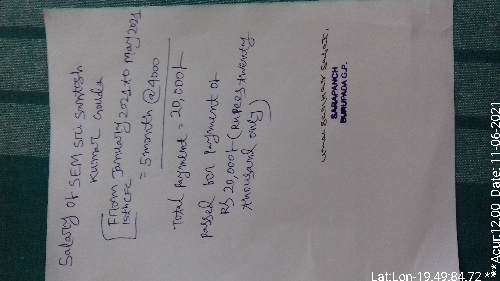 Salary of SEM Sri Santosh
Kumar Gouda
From January 2021 to May 2021
15th CFC
= 5 month @ 4000
Total payment = 20,000/-
Passed for payment of
RS 20,000/- (Rupees twenty
thousand only)
SARAPANCH
BURUPADA G.P.
Lat:Lon-19.49:84.72 ***Acur1200 Date: 11-06-2021